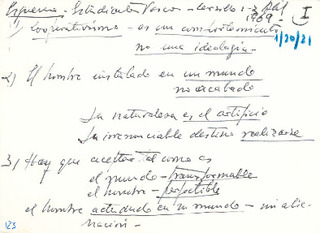 Esquema - Estudiantes Vascos - Loyola - 1-3 Abril I
1969
1/20/21
1) Cooperativismo - es un comportamiento
no una ideologia.
2/ El hombre instalado en un mundo
no acabado
La naturaleza es el artificio
La irrenunciable destino realizarse
3/ Hay que aceptar tal como es
el mundo - transformable
el hombre - perfectible
el hombre actuando en su mundo - sin alie-
nación -
123